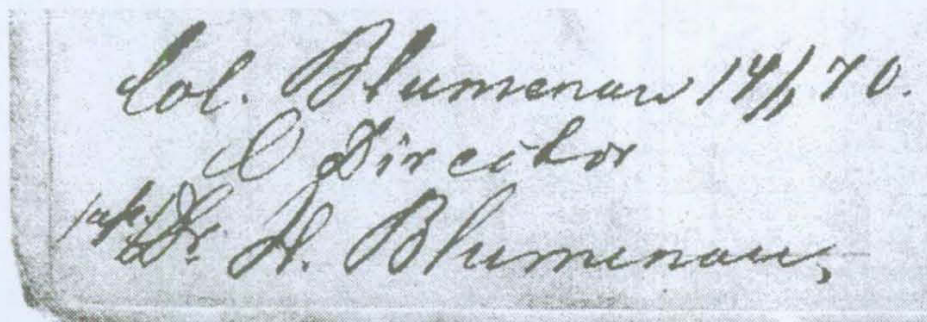 Col. Blumenau 14/1 70.
O Director
Dr. H. Blumenau,